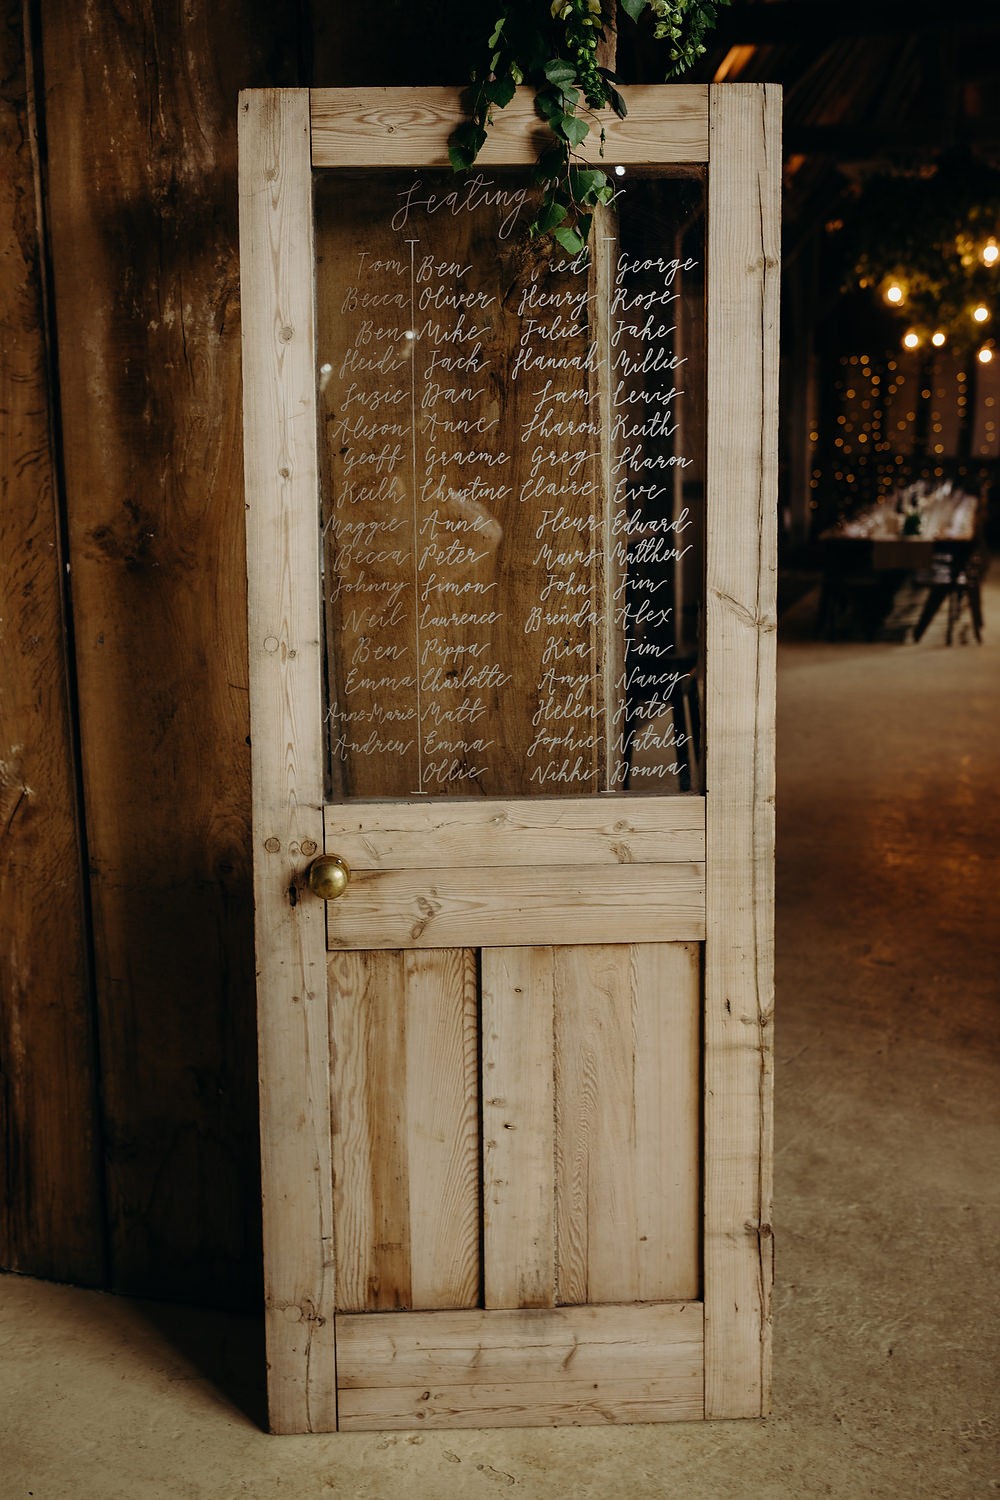 Seating
Tom Ben George
Becca Oliver Henry Rose
Ben Mike Julie Jake
Heidi Jack Hannah Millie
Suzie Dan Sam Lewis
Alison Anne Sharon Keith
Geoff Graeme Greg Sharon
Keith Christine Claire Eve
Maggie Anne Fleur Edward
Becca Peter Mavis Matthew
Johnny Simon John Jim
Neil Lawrence Brenda Alex
Ben Pippa Kia Tim
Emma Charlotte Amy Nancy
Anne-Marie Matt Helen Kate
Andrew Emma Sophie Natalie
Ollie Nikki Donna